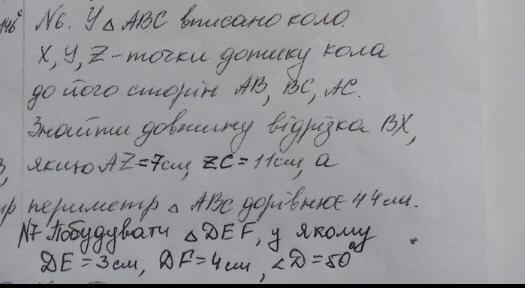 146°
№6. У △ABC вписано коло.
X, Y, Z - точки дотику кола
до його сторін AB, BC, AC.
Знайти довжину відрізка BX,
якщо AZ=7см, ZC=11см, а
периметр △ ABC дорівнює 44см.
№7 Побудувати △DEF, у якому
DE=3см, DF=4см, ∠D=50°